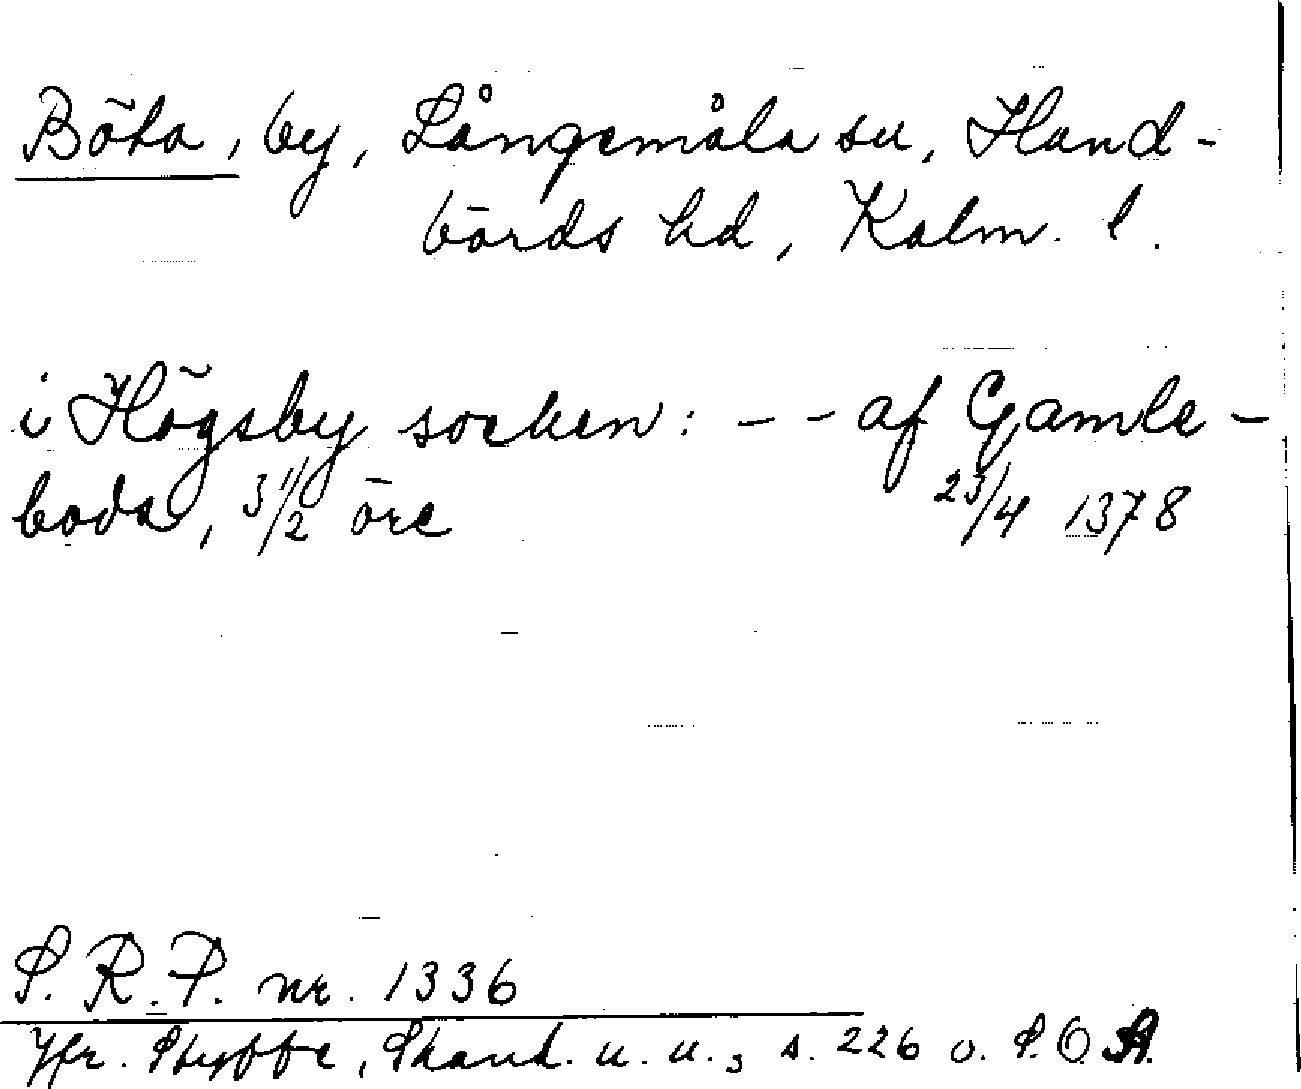 Böta, by, Långemåla sn, Hand-
börds hd, Kalm. l.
i Högsby socken: - - af Gamle-
boda, 3 1/2 öre 23/4 1378
S. R. P. nr. 1336
Jfr. Stybbe, Skand. u. u., s. 226 o. S.O.A.